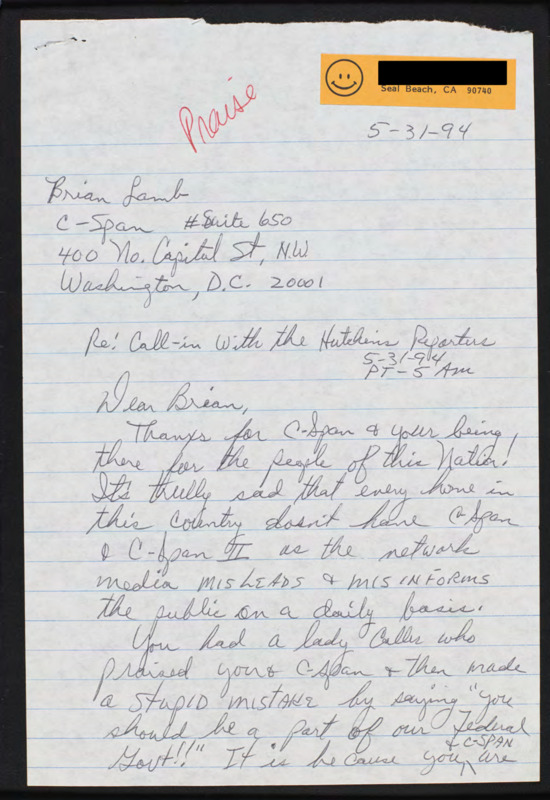 Seal Beach, CA 90740
Praise
5-31-94
Brian Lamb
C-Span #Suite 650
400 No. Capitol St, N.W.
Washington, D.C. 20001
Re: Call-in with the Hutchins Reporters
5-31-94
PT-5 AM
Dear Brian,
Thanks for C-Span & your being
there for the people of this Nation!
It's trully sad that every home in
this country dosn't have C-Span
& C-Span II as the network
media MISLEADS & MISINFORMS
the public on a daily basis.
You had a lady caller who
praised your & C-Span & then made
a STUPID MISTAKE by saying "you
should be a part of our Federal
Govt!!" It is because you & C-SPAN are